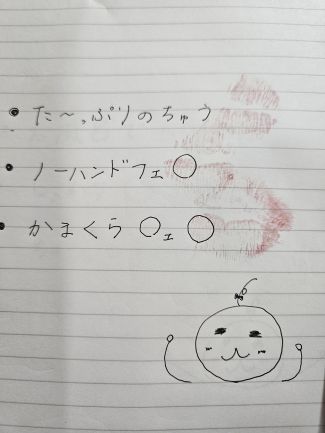 ・た〜っぷりのちゅう
・ノーハンドフェ〇
・かまくら〇ェ〇